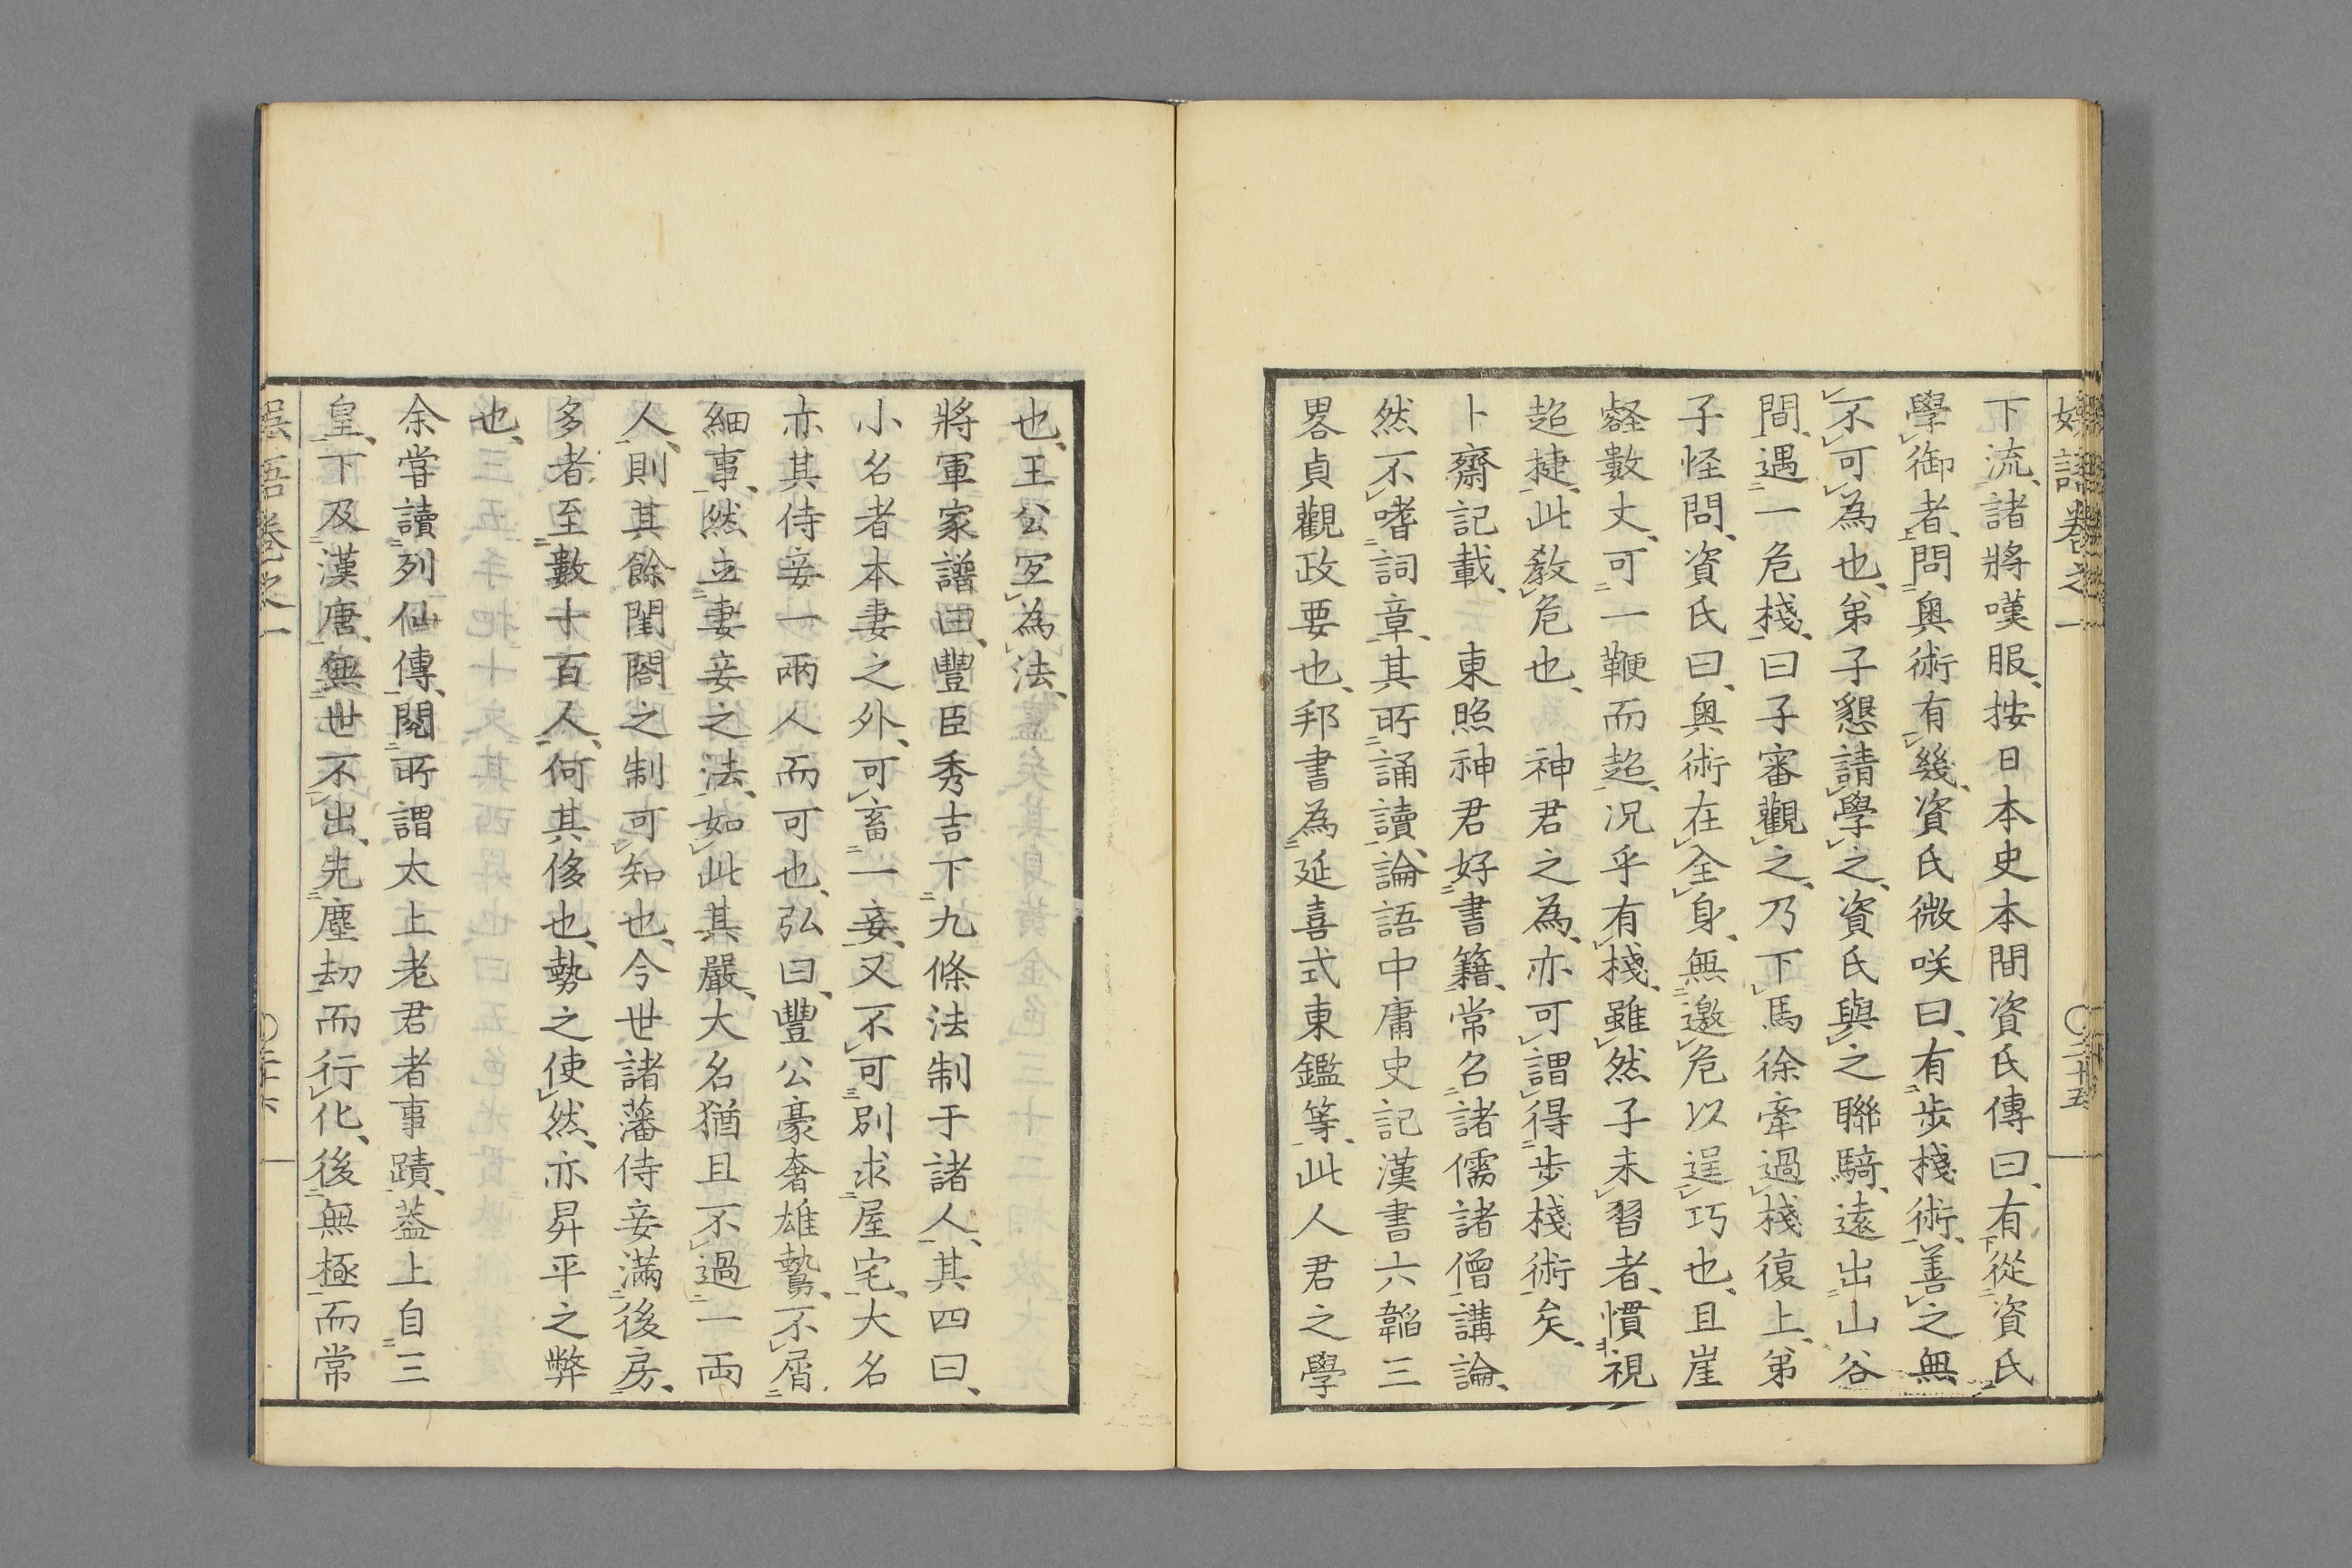 下流、諸將嘆服、按日本史本間資氏傳曰、有從資氏
學御者、問奥術有幾、資氏微咲曰、有步棧術、善之無
不可為也、弟子懇請學之、資氏與之聯騎、遠出山谷
間、遇一危棧、曰子審觀之、乃下馬徐牽過棧復上、弟
子怪問、資氏曰、奥術在全身、無邀危以逞巧也、且崖
壑數丈、可一鞭而超、況乎有棧、雖然子未習者、慣視
超捷、此教危也、神君之為、亦可謂得步棧術矣、
卜齋記載、東照神君好書籍、常召諸儒諸僧講論、
然不嗜詞章、其所誦讀、論語中庸史記漢書六韜三
畧貞觀政要也、邦書為延喜式東鑑等、此人君之學
也、王公宜為法、
將軍家譜曰、豐臣秀吉下九條法制于諸人、其四曰、
小名者本妻之外、可畜一妾、又不可別求屋宅、大名
亦其侍妾一兩人而可也、弘曰、豐公豪奢雄鷙、不屑
細事、然立妻妾之法、如此其嚴、大名猶且不過一兩
人、則其餘閨閤之制可知也、今世諸藩侍妾滿後房、
多者至數十百人、何其侈也、勢之使然、亦昇平之弊
也、
余嘗讀列仙傳、閱所謂太上老君者事蹟、蓋上自三
皇、下及漢唐、無世不出、先塵劫而行化、後無極而常
卷之一
二十五
卷之一
二十六